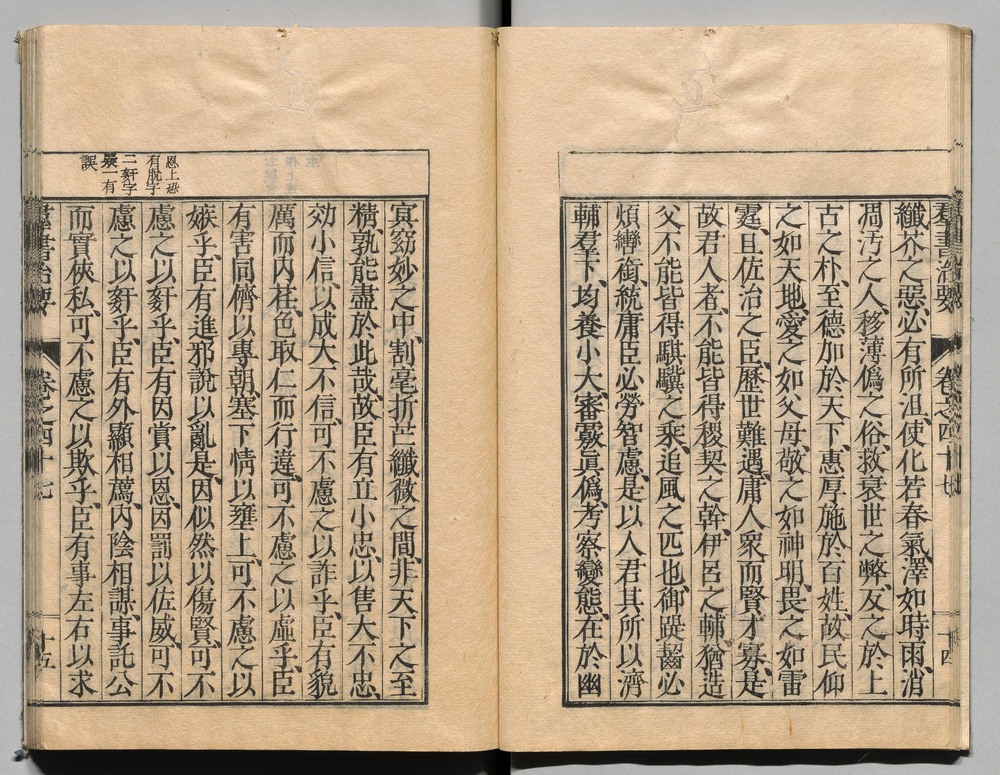 羣書治要 卷之四十七 十四
纖芥之惡、必有所沮、使化若春氣、澤如時雨、消
凋汚之人、移薄僞之俗、救衰世之弊、友之於上
古之朴、至德加於天下、惠厚施於百姓、故民仰
之如天地、愛之如父母、敬之如神明、畏之如雷
霆、且佐治之臣、歷世難遇、庸人衆而賢才寡、是
故君人者、不能皆得稷契之幹、伊呂之輔、猶造
父不能皆得騏驥之乘、追風之匹也、御踶齧必
煩轡銜、統庸臣必勞智慮、是以人君其所以濟
輔羣下、均養小大、審覈眞僞、考察變態、在於幽
冥窈妙之中、割毫折芒纖微之間、非天下之至
精、孰能盡於此哉、故臣有立小忠、以售大不忠、
効小信、以成大不信、可不慮之以詐乎、臣有貌
厲而內荏、色取仁而行違、可不慮之以虛乎、臣
有害同儕以專朝、塞下情以壅上、可不慮之以
嫉乎、臣有進邪說以亂是、因似然以傷賢、可不
慮之以姧乎、臣有因賞以恩、因罰以佐威、可不
慮之以姧乎、臣有外顯相薦、內陰相謀、事託公
而實俠私、可不慮之以欺乎、臣有事左右以求
羣書治要 卷之四十七 十五
恩上恐
有脫字
二姧字
疑一有
誤